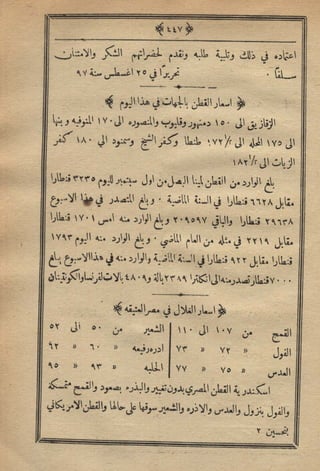 ﴿ ٤٤٧ ﴾
اعتماده في ذلك وتلبية طلبه ونقدم لحضراتهم الشكر والامتنان
سلفاً . تحريراً في ٢٥ اغسطس سنة ٩٧
﴿ اسعار القطن بالجهات في هذا اليوم ﴾
الزقازيق الى ١٥٠ دمنهور وقليوب والمنصوره الى ١٧٠ المنوفيه وبنها
الى ١٧٥ المحله الى ١/٢ ١٧٢ طنطا وكفر الشيخ وسمنود الى ١٨٠ كفر
الزيات الى ١/٢ ١٨٢
بلغ الوارد من القطن لمينا البصل من اول سبتمبر لليوم ٣٢٣٥ قنطارا
مقابل ٦٦٢٨ قنطارا في السنة الماضية . وبلغ المتصدر في هذا الاسبوع
٢٩٦٣٨ قنطارا والباقي ٢٠٩٥٩٧ وبلغ الوارد منه امس ١٧٠١ قنطارا
مقابل ٢٢١٩ في مثله من العام الماضي . وبلغ الوارد منه اليوم ١٧٩٣
قنطارا مقابل ٩٢٢ قنطارا في السنة الماضية والوارد منه في هذا الاسبوع بلغ
٧٠٠٠ قنطار تصدر منه الى انكلترا ٢٣٨٩ بالة و٤٨٠٩ بالات لفرنسا والكونتيننان
﴿ اسعار الغلال في مصر العتيقه ﴾
القمح من ١٠٧ الى ١١٠ الشعير من ٥٠ الى ٥٢
الفول » ٧٢ » ٧٣ اذره رفيعه » ٦٠ » ٦٢
العدس » ٧٥ » ٧٧ الحلبه » ٩٣ » ٩٥
اسكندرية القطن المصري بدون تغيير والبذره بصعود والقمح متمسكه
والفول بنزول والعدس والاذره والشعير سوقها على حالها والقطن الامريكاني
بتحسين ٢